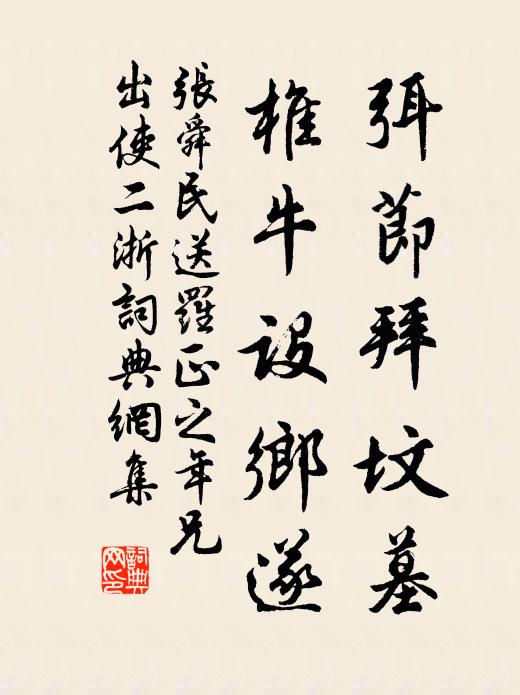 弭節拜墳墓
椎牛設鄉遂
張舜民送羅正之年兄
出使二浙詞典網集
詞典網印